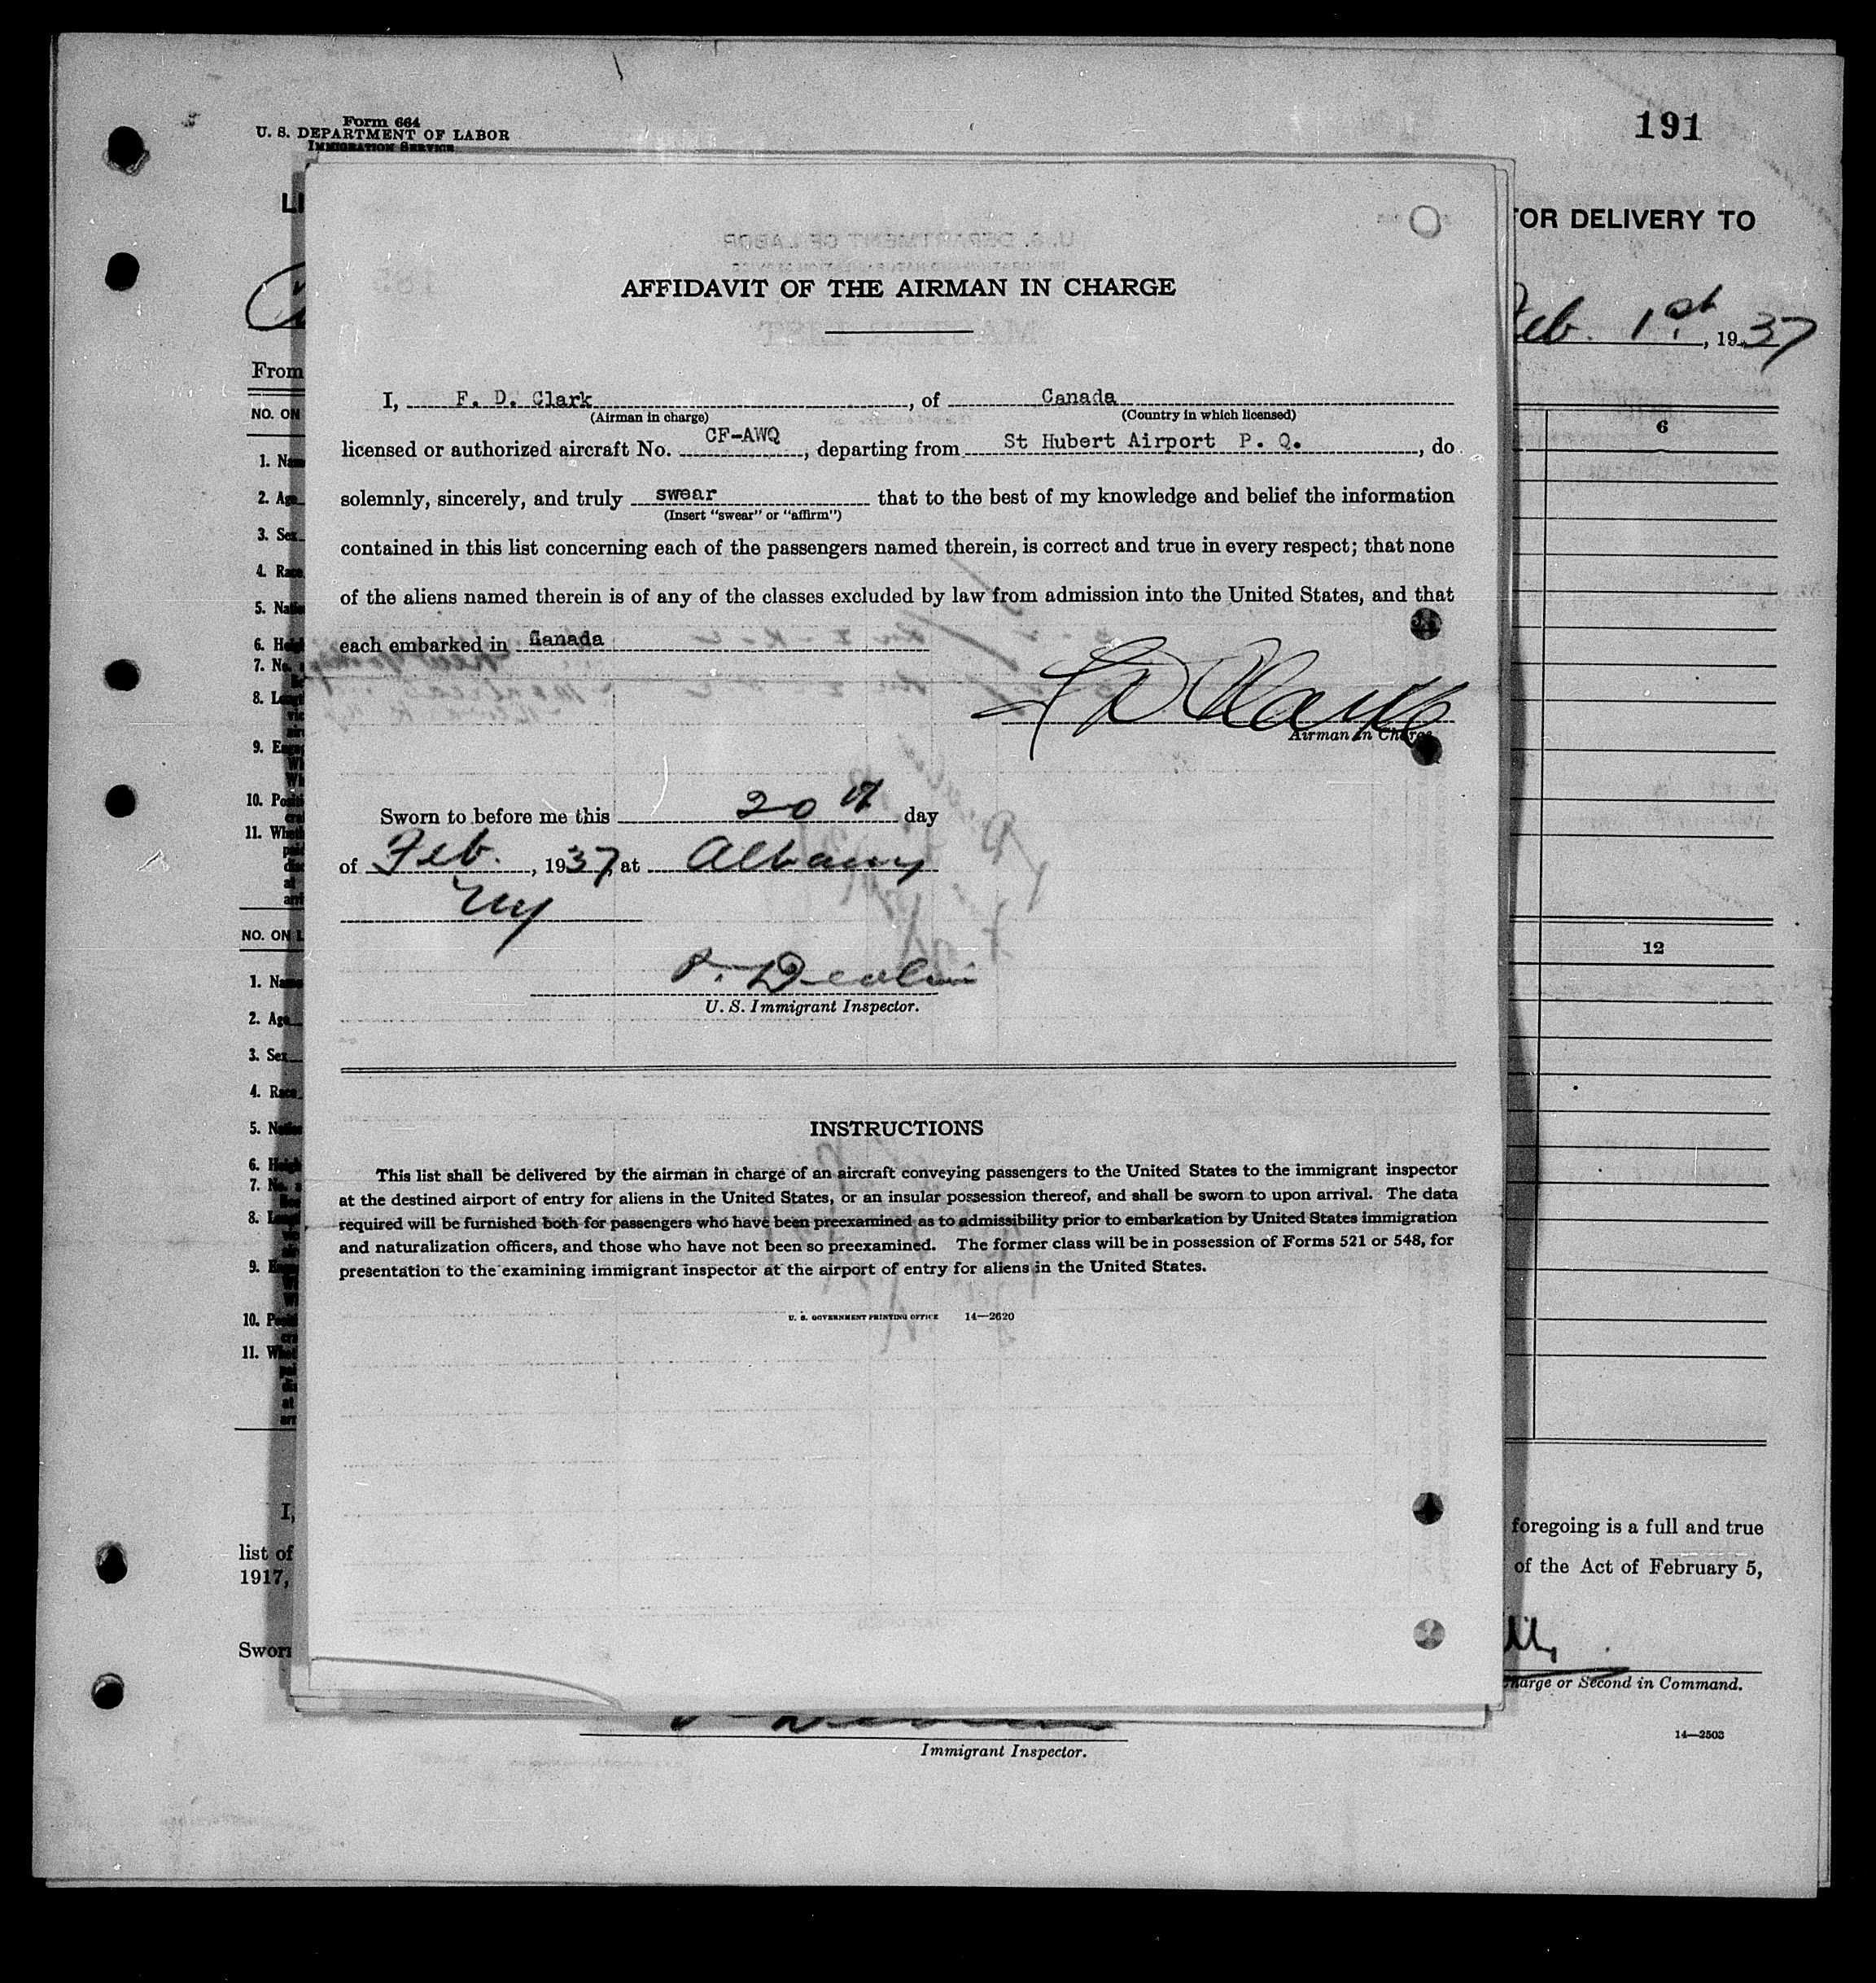 Form 664
U. S. DEPARTMENT OF LABOR
IMMIGRATION SERVICE
191
TOR DELIVERY TO
Feb. 1st, 1937
From
NO. ON
6
1. Name
2. Age
3. Sex
4. Race
5. Natio
6. Heigh
7. No.
8. Lengt
9. Enga
10. Positi
11. Wheth
NO. ON L
12
1. Name
2. Age
3. Sex
4. Race
5. Natio
6. Heigh
7. No.
8. L
9. E
10. Po
11. Whet
I,
list of
1917,
Sworn
foregoing is a full and true
of the Act of February 5,
Charge or Second in Command.
14—2503
Immigrant Inspector.
AFFIDAVIT OF THE AIRMAN IN CHARGE
I, F. D. Clark, of Canada
(Airman in charge) (Country in which licensed)
licensed or authorized aircraft No. CF-AWQ, departing from St Hubert Airport P. Q., do
solemnly, sincerely, and truly swear that to the best of my knowledge and belief the information
(Insert "swear" or "affirm")
contained in this list concerning each of the passengers named therein, is correct and true in every respect; that none
of the aliens named therein is of any of the classes excluded by law from admission into the United States, and that
each embarked in Canada
F D Clark
Airman in Charge
Sworn to before me this 20th day
of Feb., 1937, at Albany
NY
P. Devlin
U. S. Immigrant Inspector.
INSTRUCTIONS
This list shall be delivered by the airman in charge of an aircraft conveying passengers to the United States to the immigrant inspector
at the destined airport of entry for aliens in the United States, or an insular possession thereof, and shall be sworn to upon arrival. The data
required will be furnished both for passengers who have been preexamined as to admissibility prior to embarkation by United States immigration
and naturalization officers, and those who have not been so preexamined. The former class will be in possession of Forms 521 or 548, for
presentation to the examining immigrant inspector at the airport of entry for aliens in the United States.
U. S. GOVERNMENT PRINTING OFFICE 14—2620